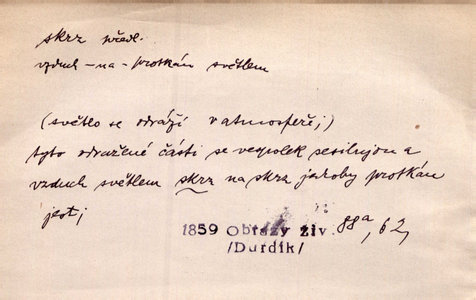 skrz předl.
vzduch -na- protkán světlem
(světlo se odráží v atmosféře;)
tyto odražené části se vespolek sesilujou a
vzduch světlem skrz na skrz jakoby protkán
jest;
1859 Obrazy živ. 88a, 62,
/Durdík/